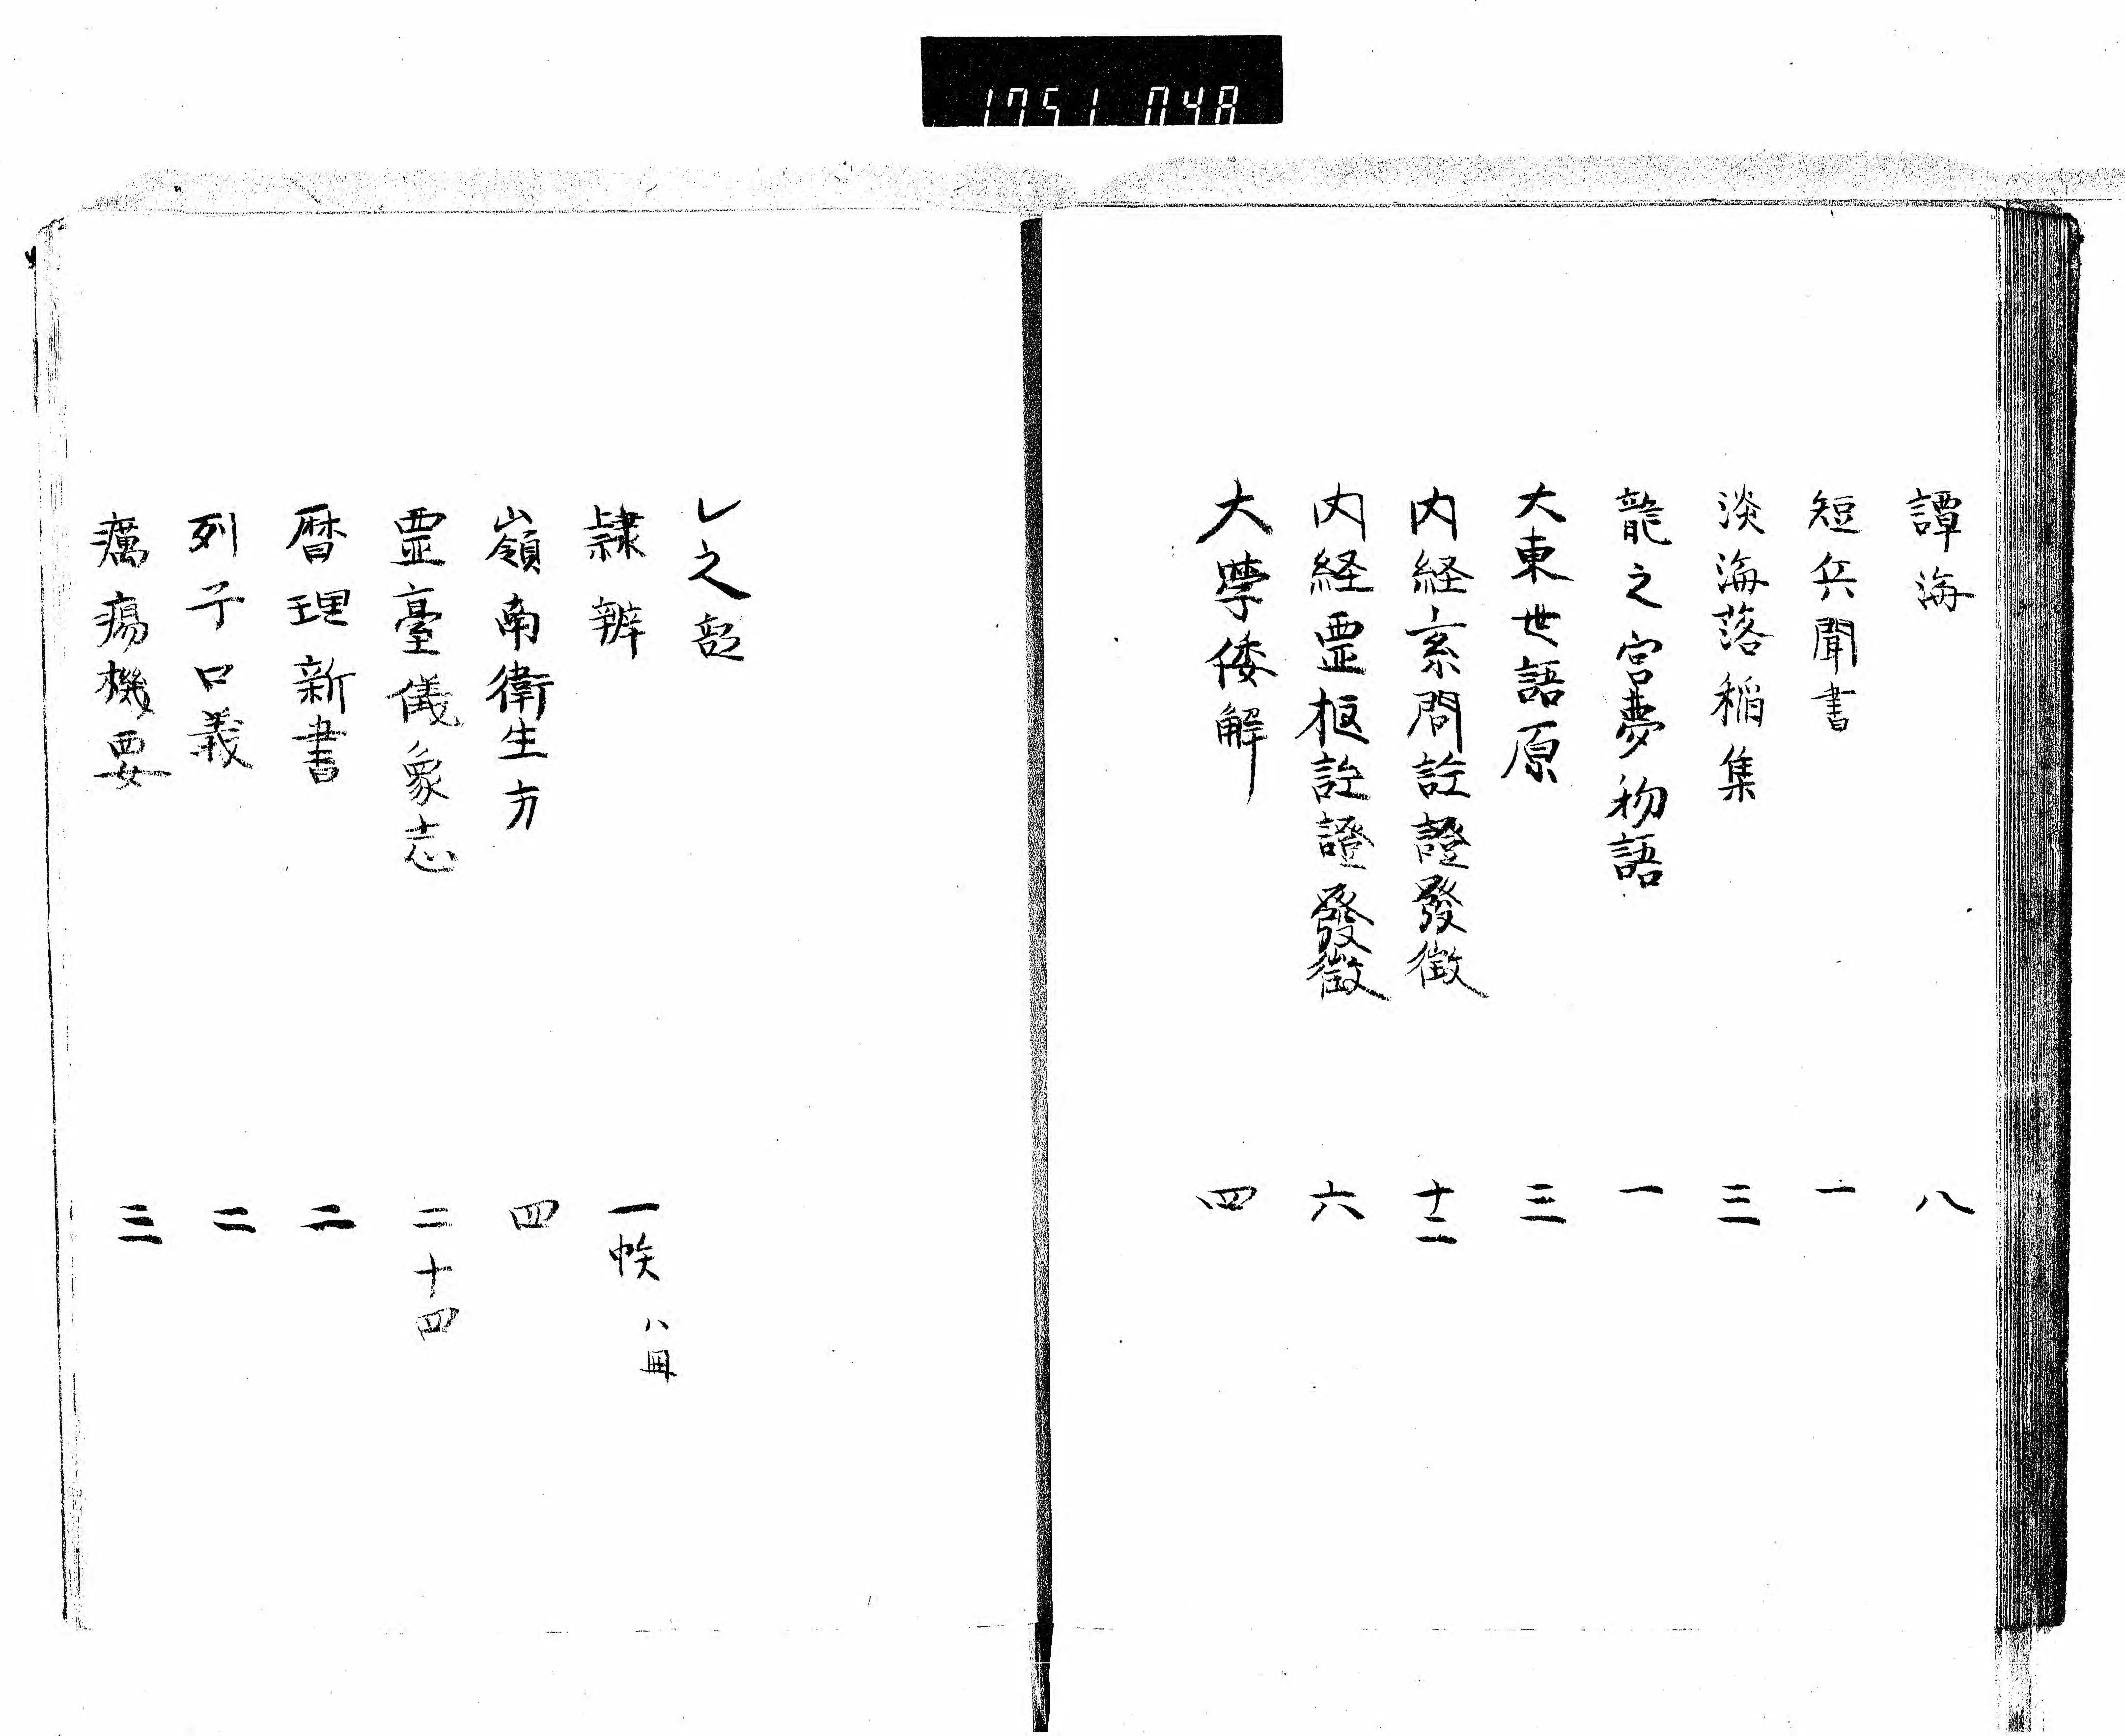 1751 048
譚海 八
短兵聞書 一
淡海落稲集 三
龍之宮夢物語 一
大東世語原 三
内経素問註證發微 十二
内経霊枢註證發微 六
大学倭解 四
レ之部
隷辨 一帙 八冊
嶺南衛生方 四
霊臺儀象志 二十四
暦理新書 二
列子口義 二
癘瘍機要 三